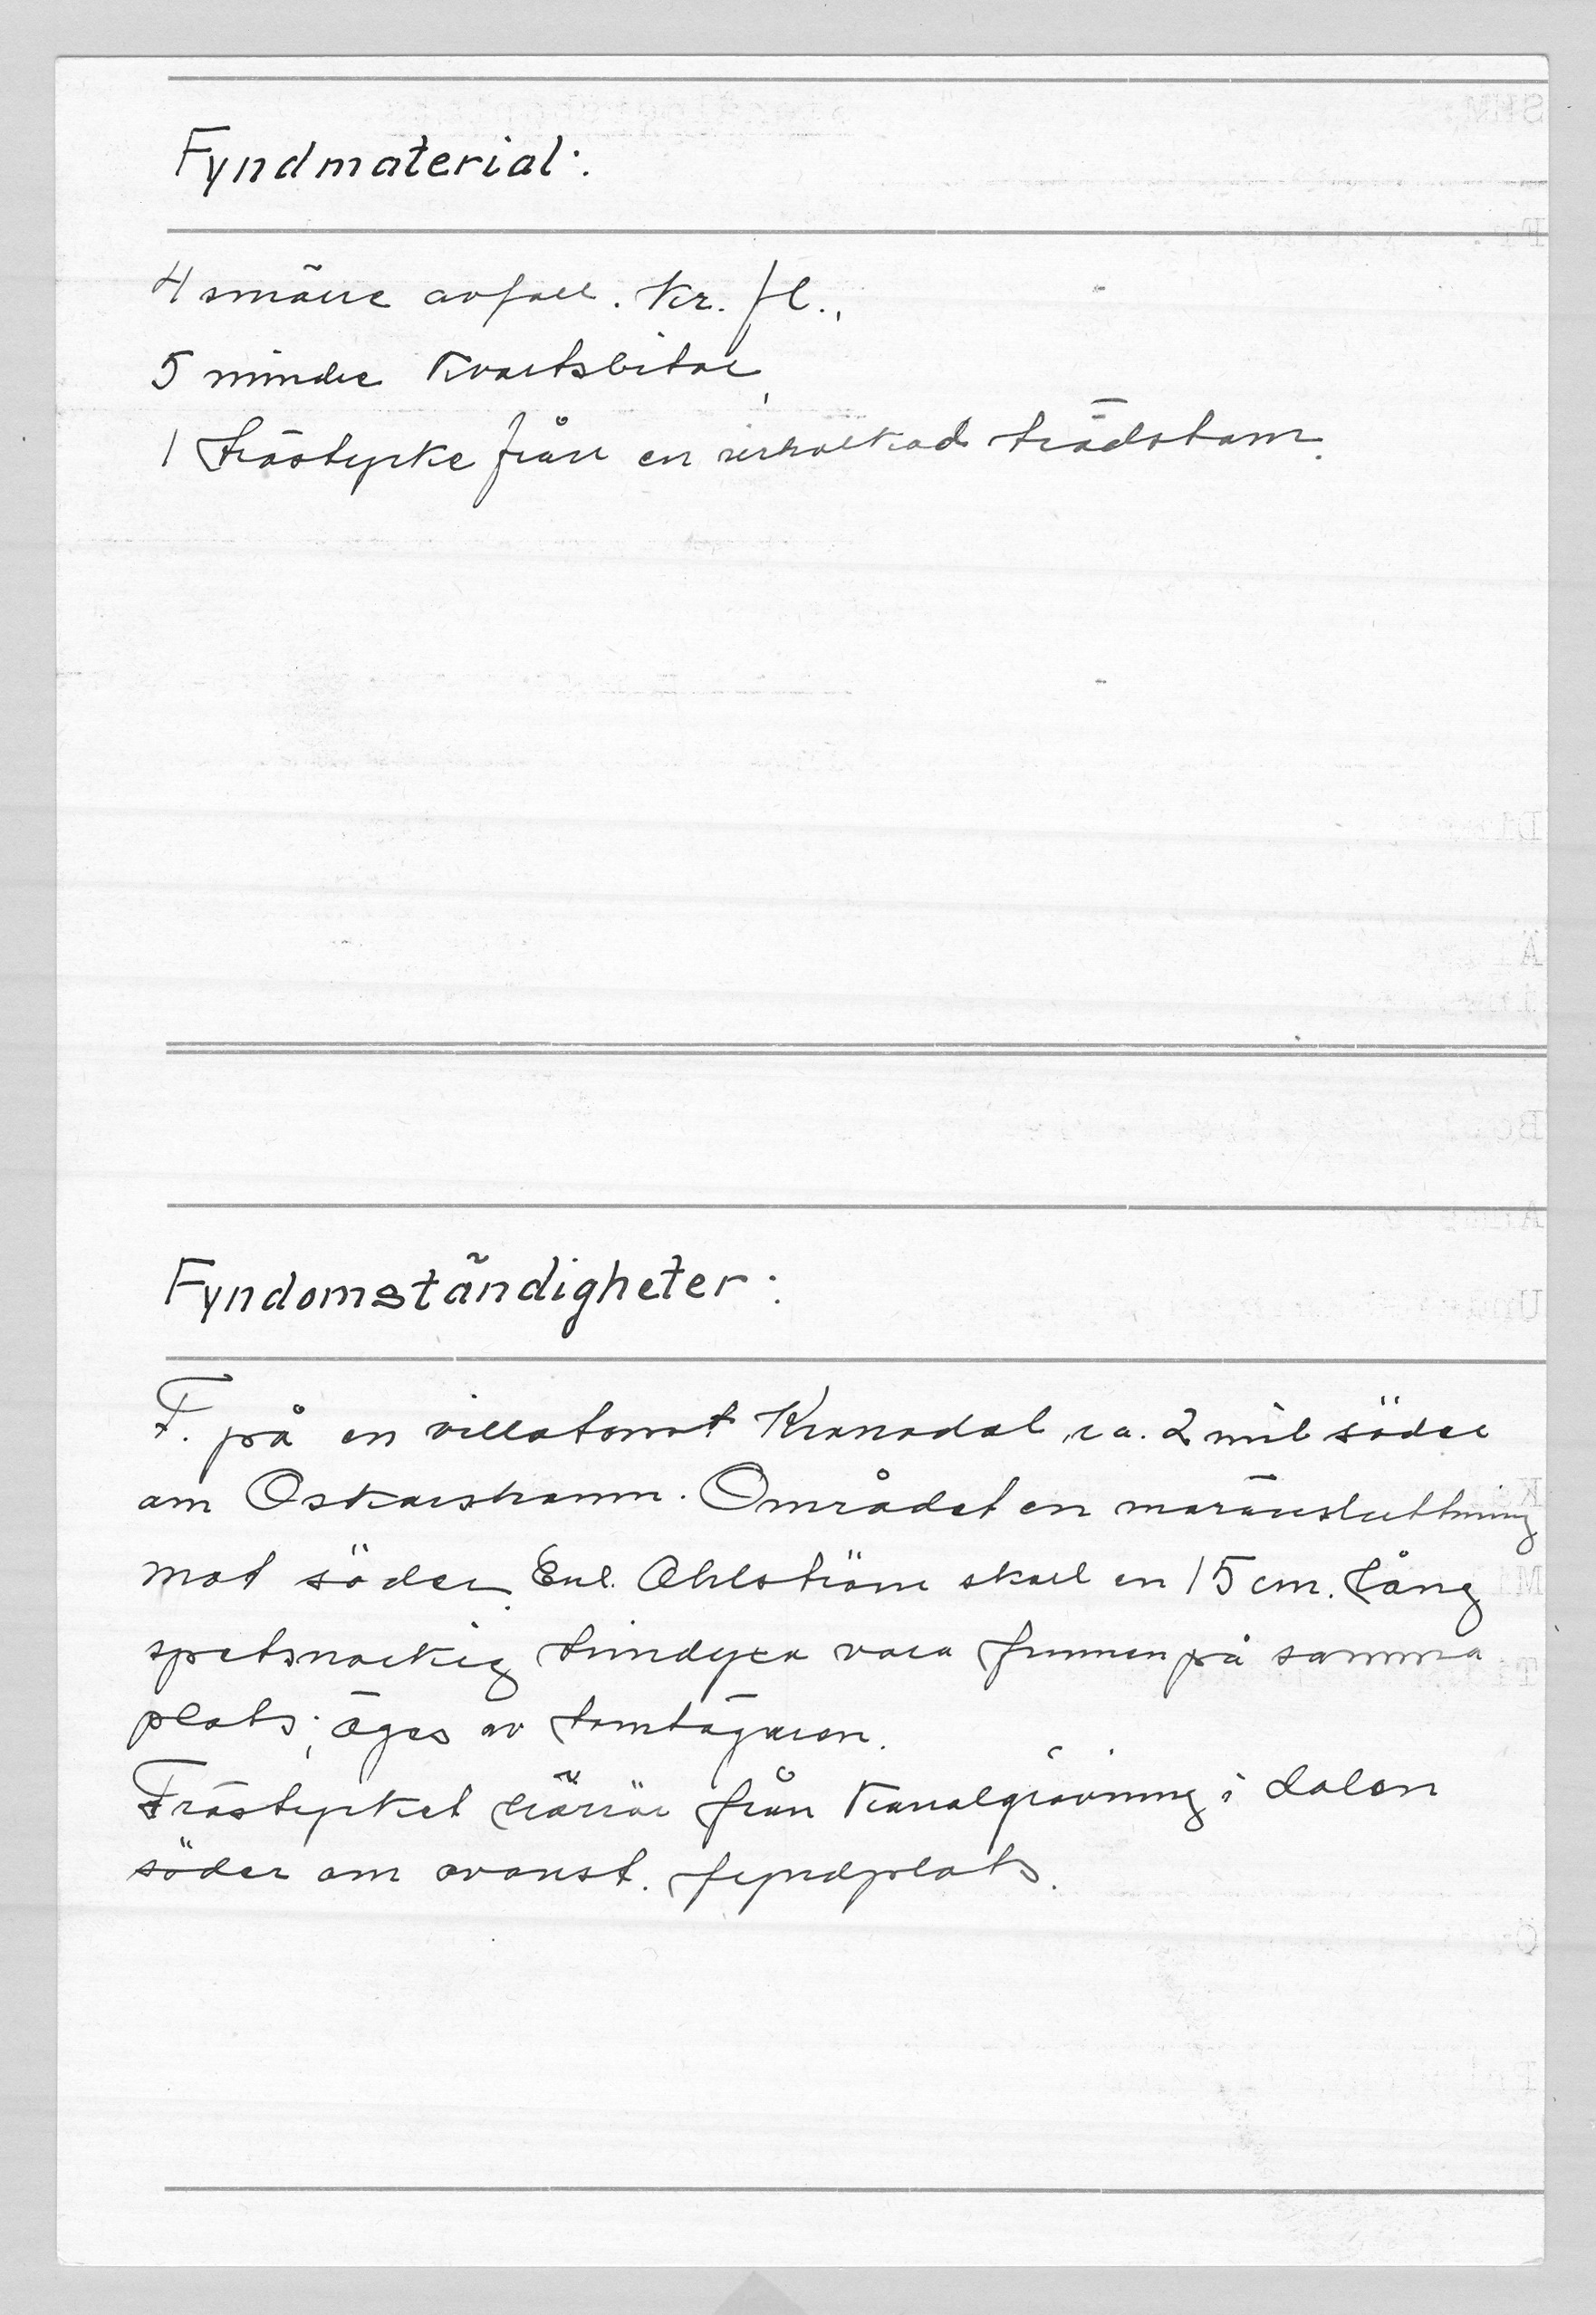 Fyndmaterial:
4 smärre avfall. Kr. fl.,
5 mindre Kvartsbitar,
1 trästycke från en urholkad trädstam.
Fyndomständigheter:
F. på en villatomt Kransdal, ca. 2 mil söder
om Oskarshamn. Området en moränsluttning
mot söder. Enl. Ahlström skall en 15 cm. lång
spetsnackig trindyxa vara funnen på samma
plats; äges av tomtägaren.
Trästycket härrör från Kanalgrävning i dalen
söder om ovanst. fyndplats.